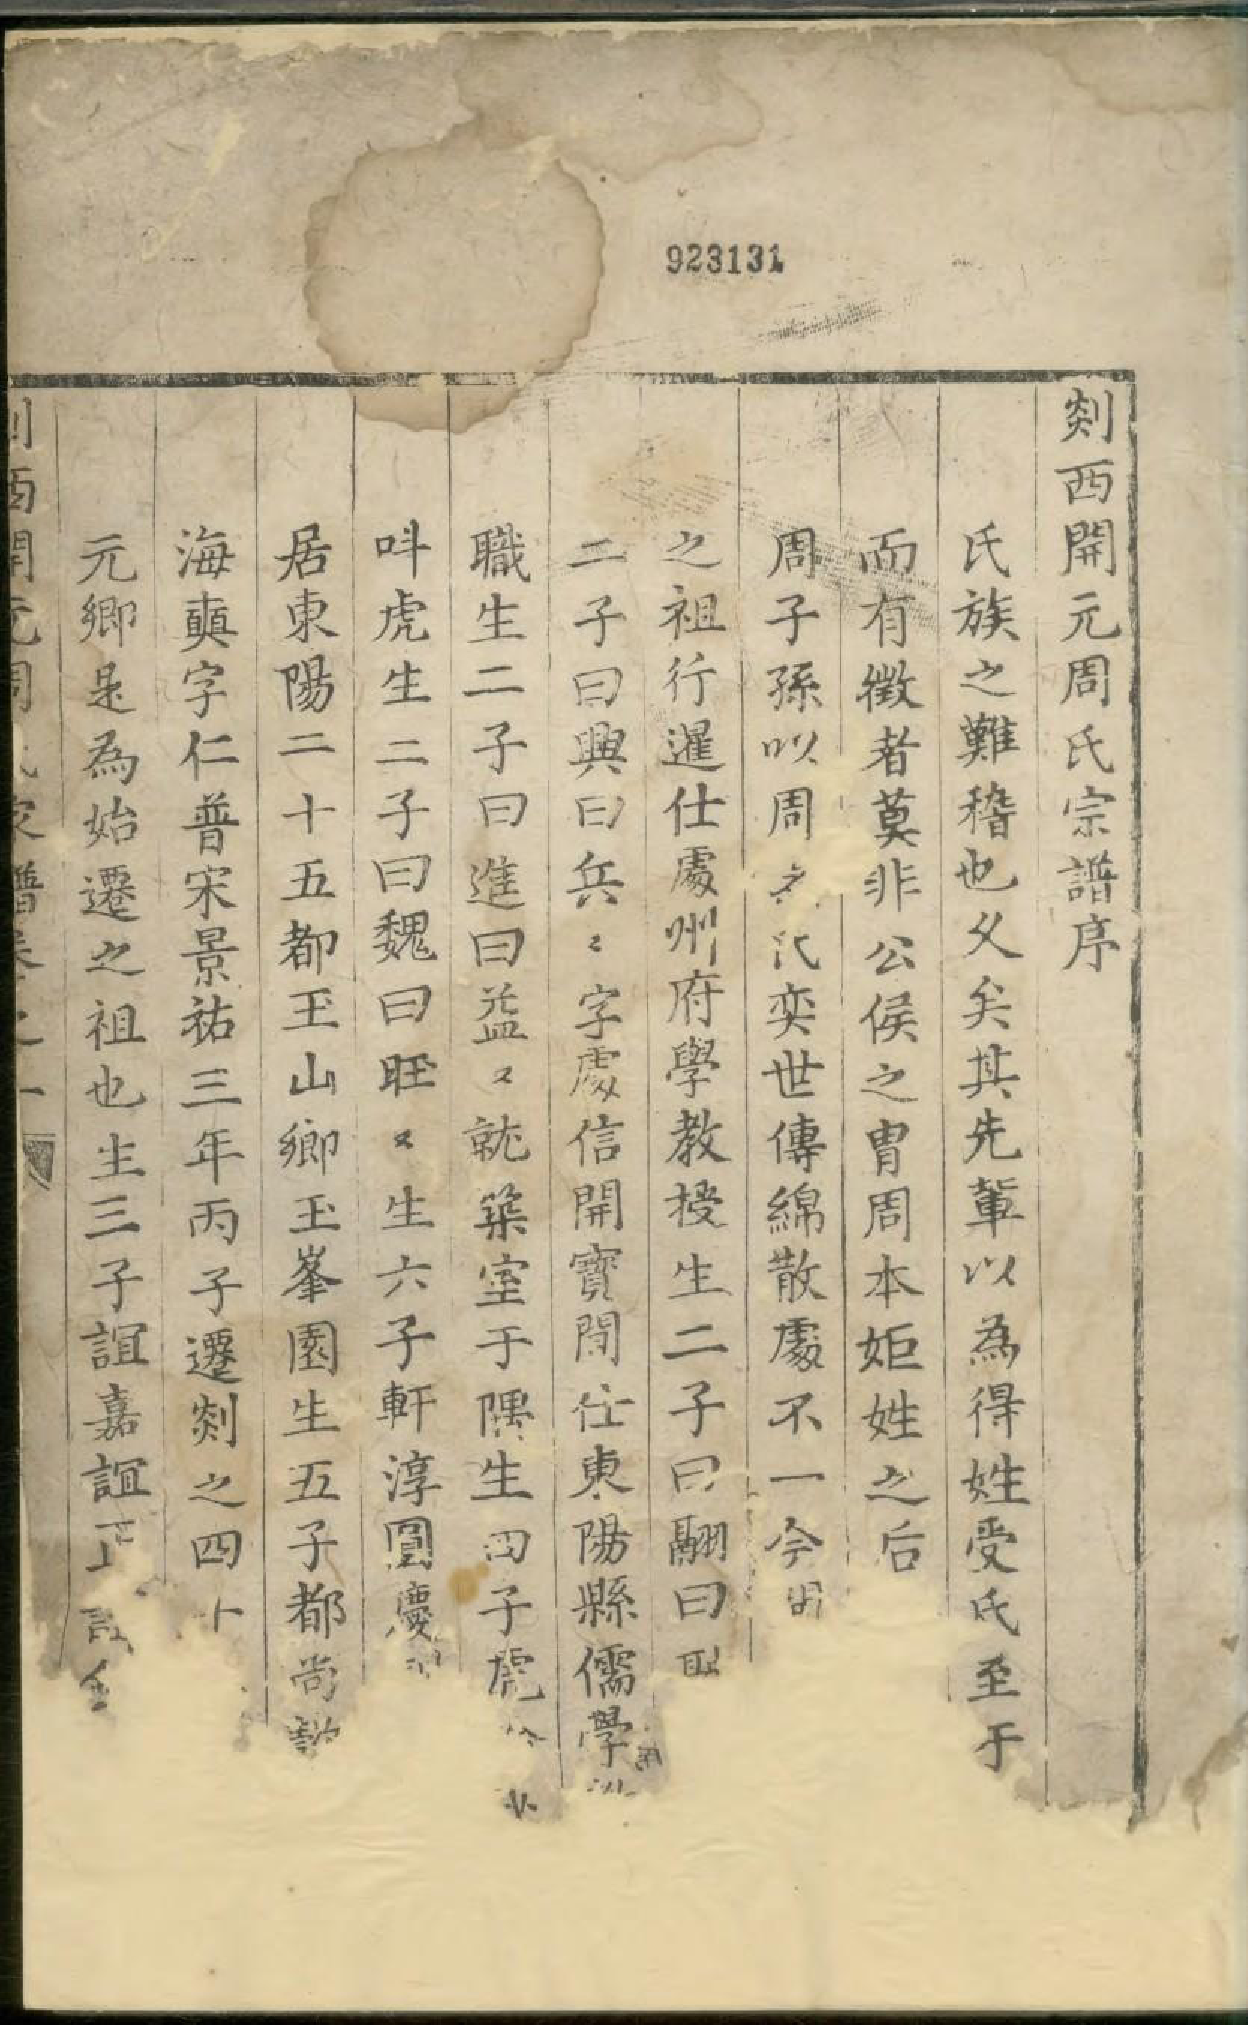 923131
剡西開元周氏宗譜序
氏族之難稽也久矣其先軰以為得姓受氏至于
而有徵者莫非公侯之胄周本姬姓之后
周子孫以周之氏奕世傳綿散處不一今
之祖行暹仕處州府學教授生二子曰翮曰
二子曰興曰兵〻字處信開寳間仕東陽縣儒學
職生二子曰進曰益〻就築室于隅生四子虎
呌虎生二子曰魏曰旺〻生六子軒淳圓慶
居東陽二十五都玉山鄉玉峯園生五子都尚
海𩕳字仁普宋景祐三年丙子遷剡之四十
元鄉是為始遷之祖也生三子誼嘉誼
西開元周氏宗譜卷之一